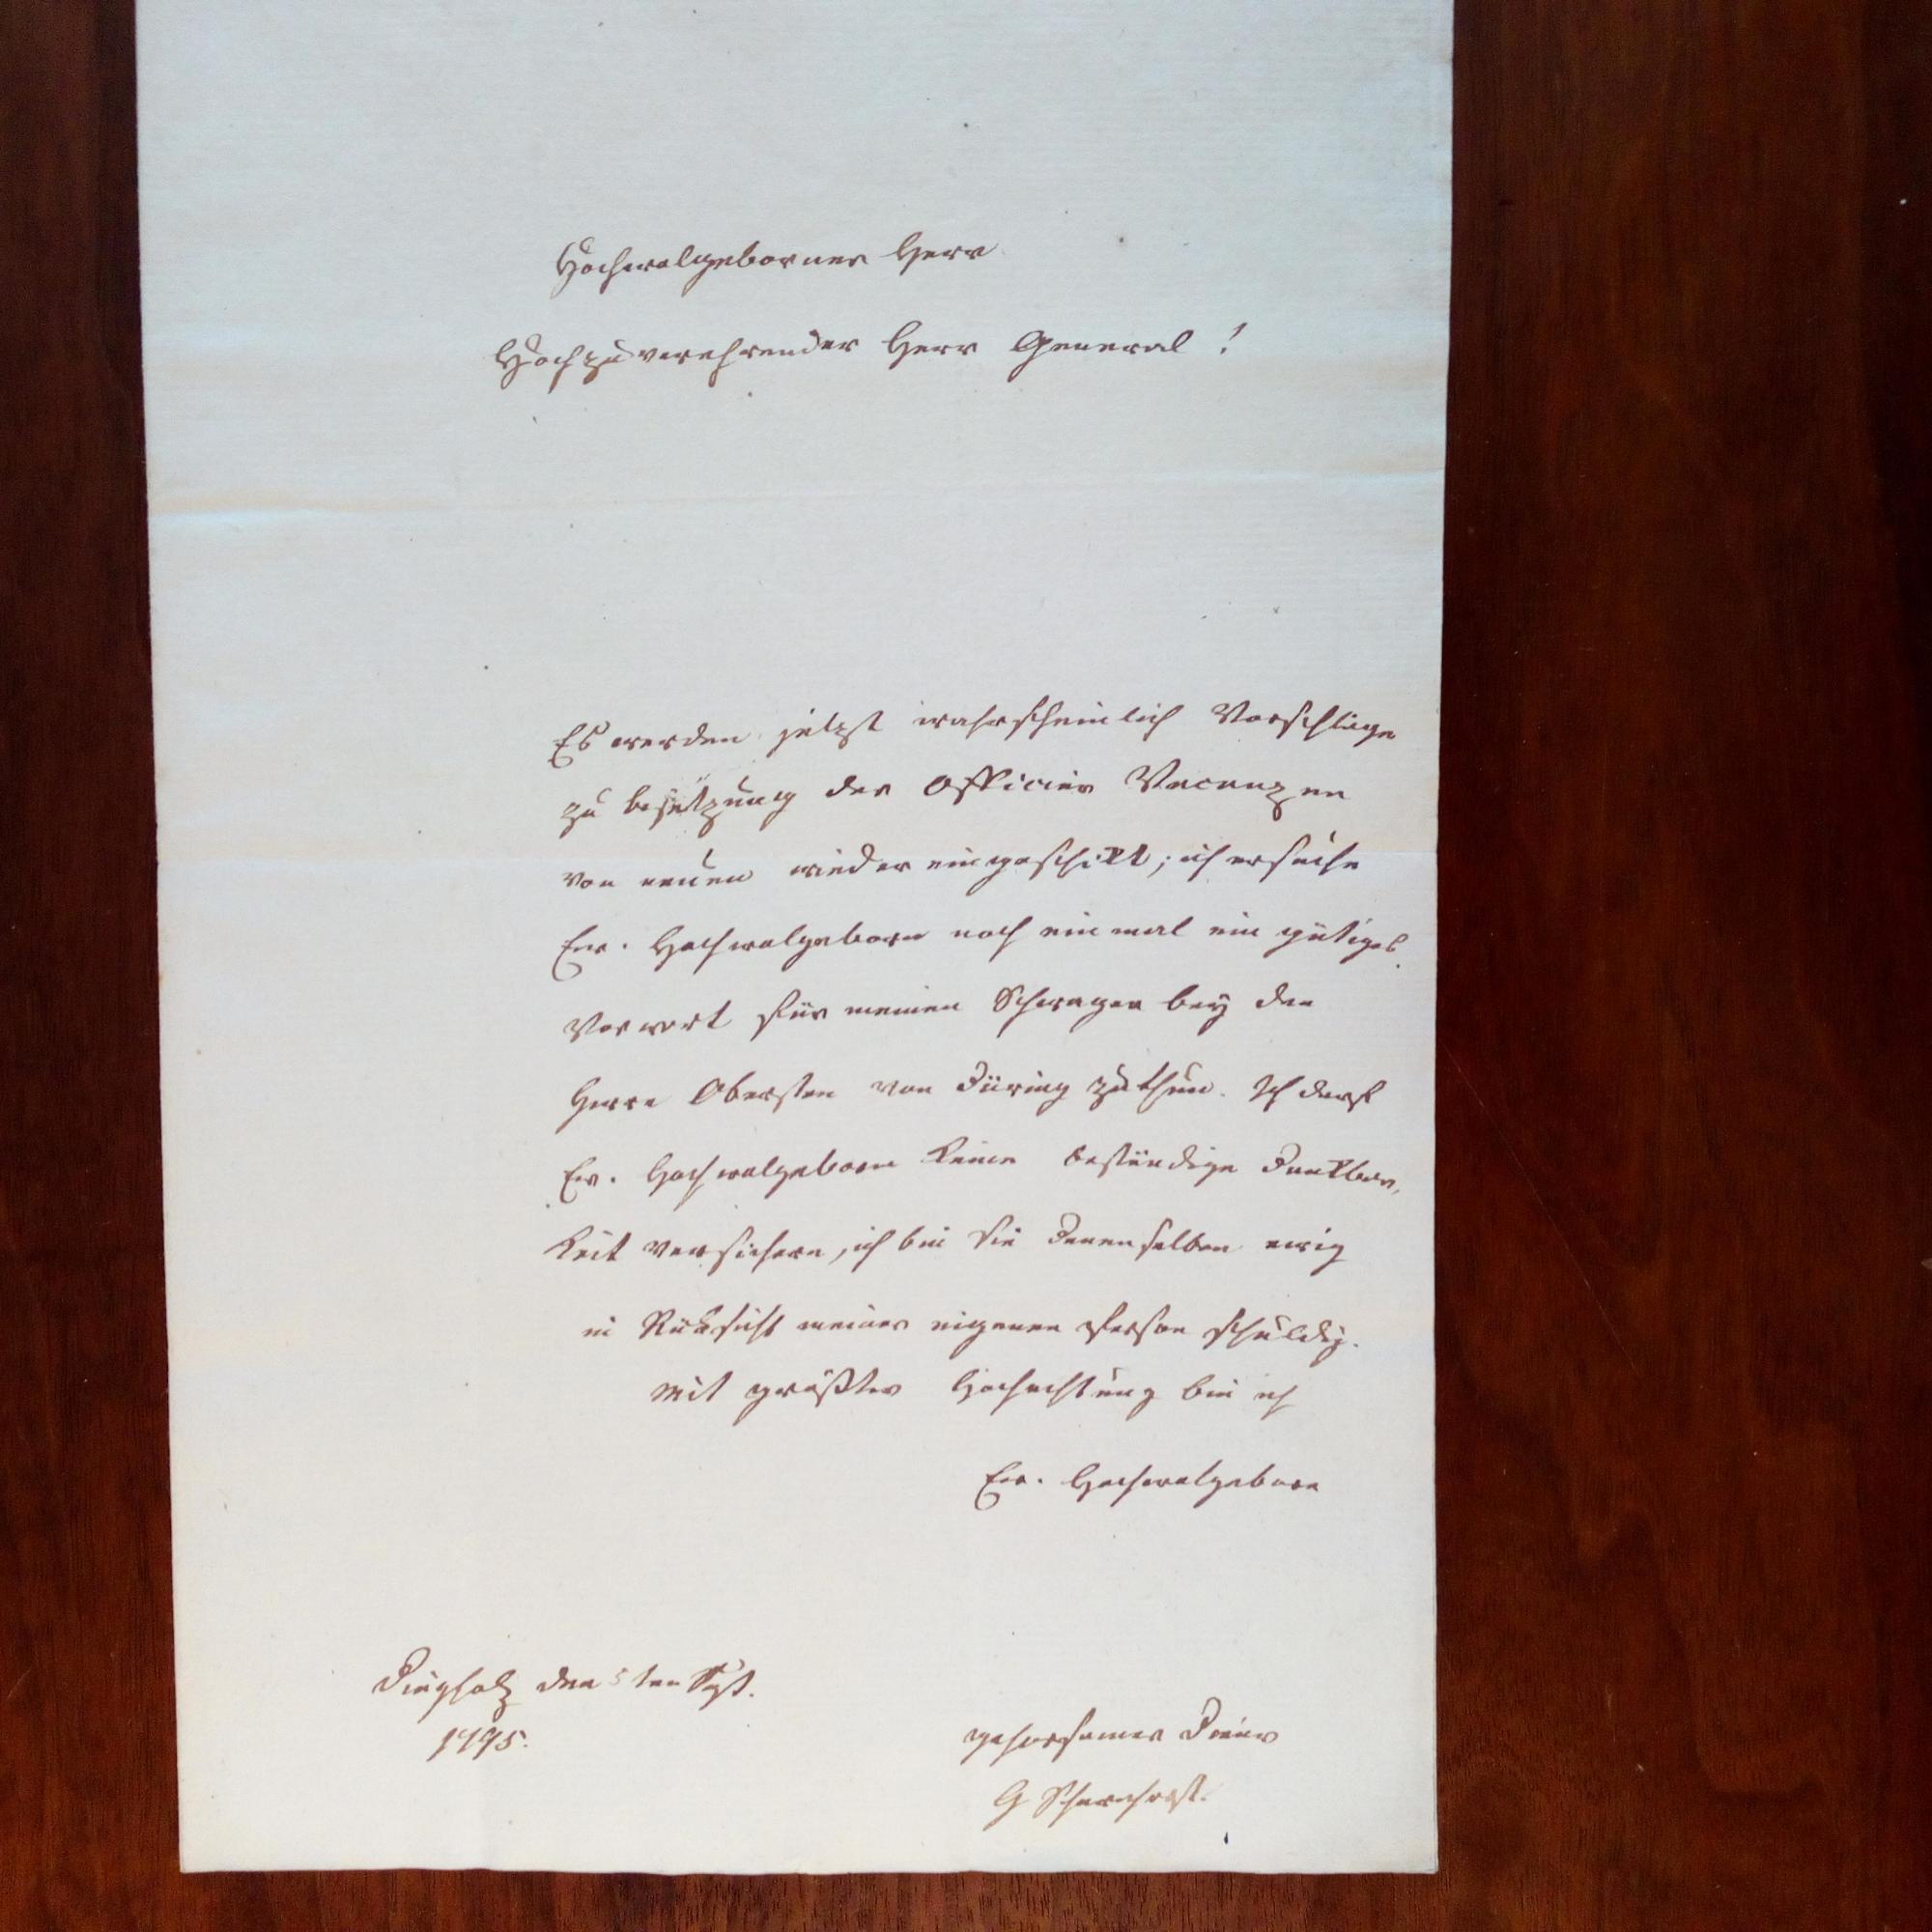 Hochwolgeborner Herr
Hochzuverehrender Herr General!
Es werden jetzt wahrscheinlich Vorschläge
zu besetzung der Officier Vacanzen
von neuen wieder eingeschikt; ich ersuche
Ew. Hochwolgeborn noch ein mal ein gütiges
Vorwort für meinen Schwager bey den
Herrn Obersten von Düring zu thun. Ich darf
Ew. Hochwolgeborn keine beständige Dankbar,
keit versichern, ich bin sie Denenselben ewig
in Rüksicht meiner eigenen Person schuldig.
Mit größter Hochachtung bin ich
Ew. Hochwolgeborn
Diepholz den 5ten Sept.
1795.
gehorsamer Diener
G Scharnhorst.